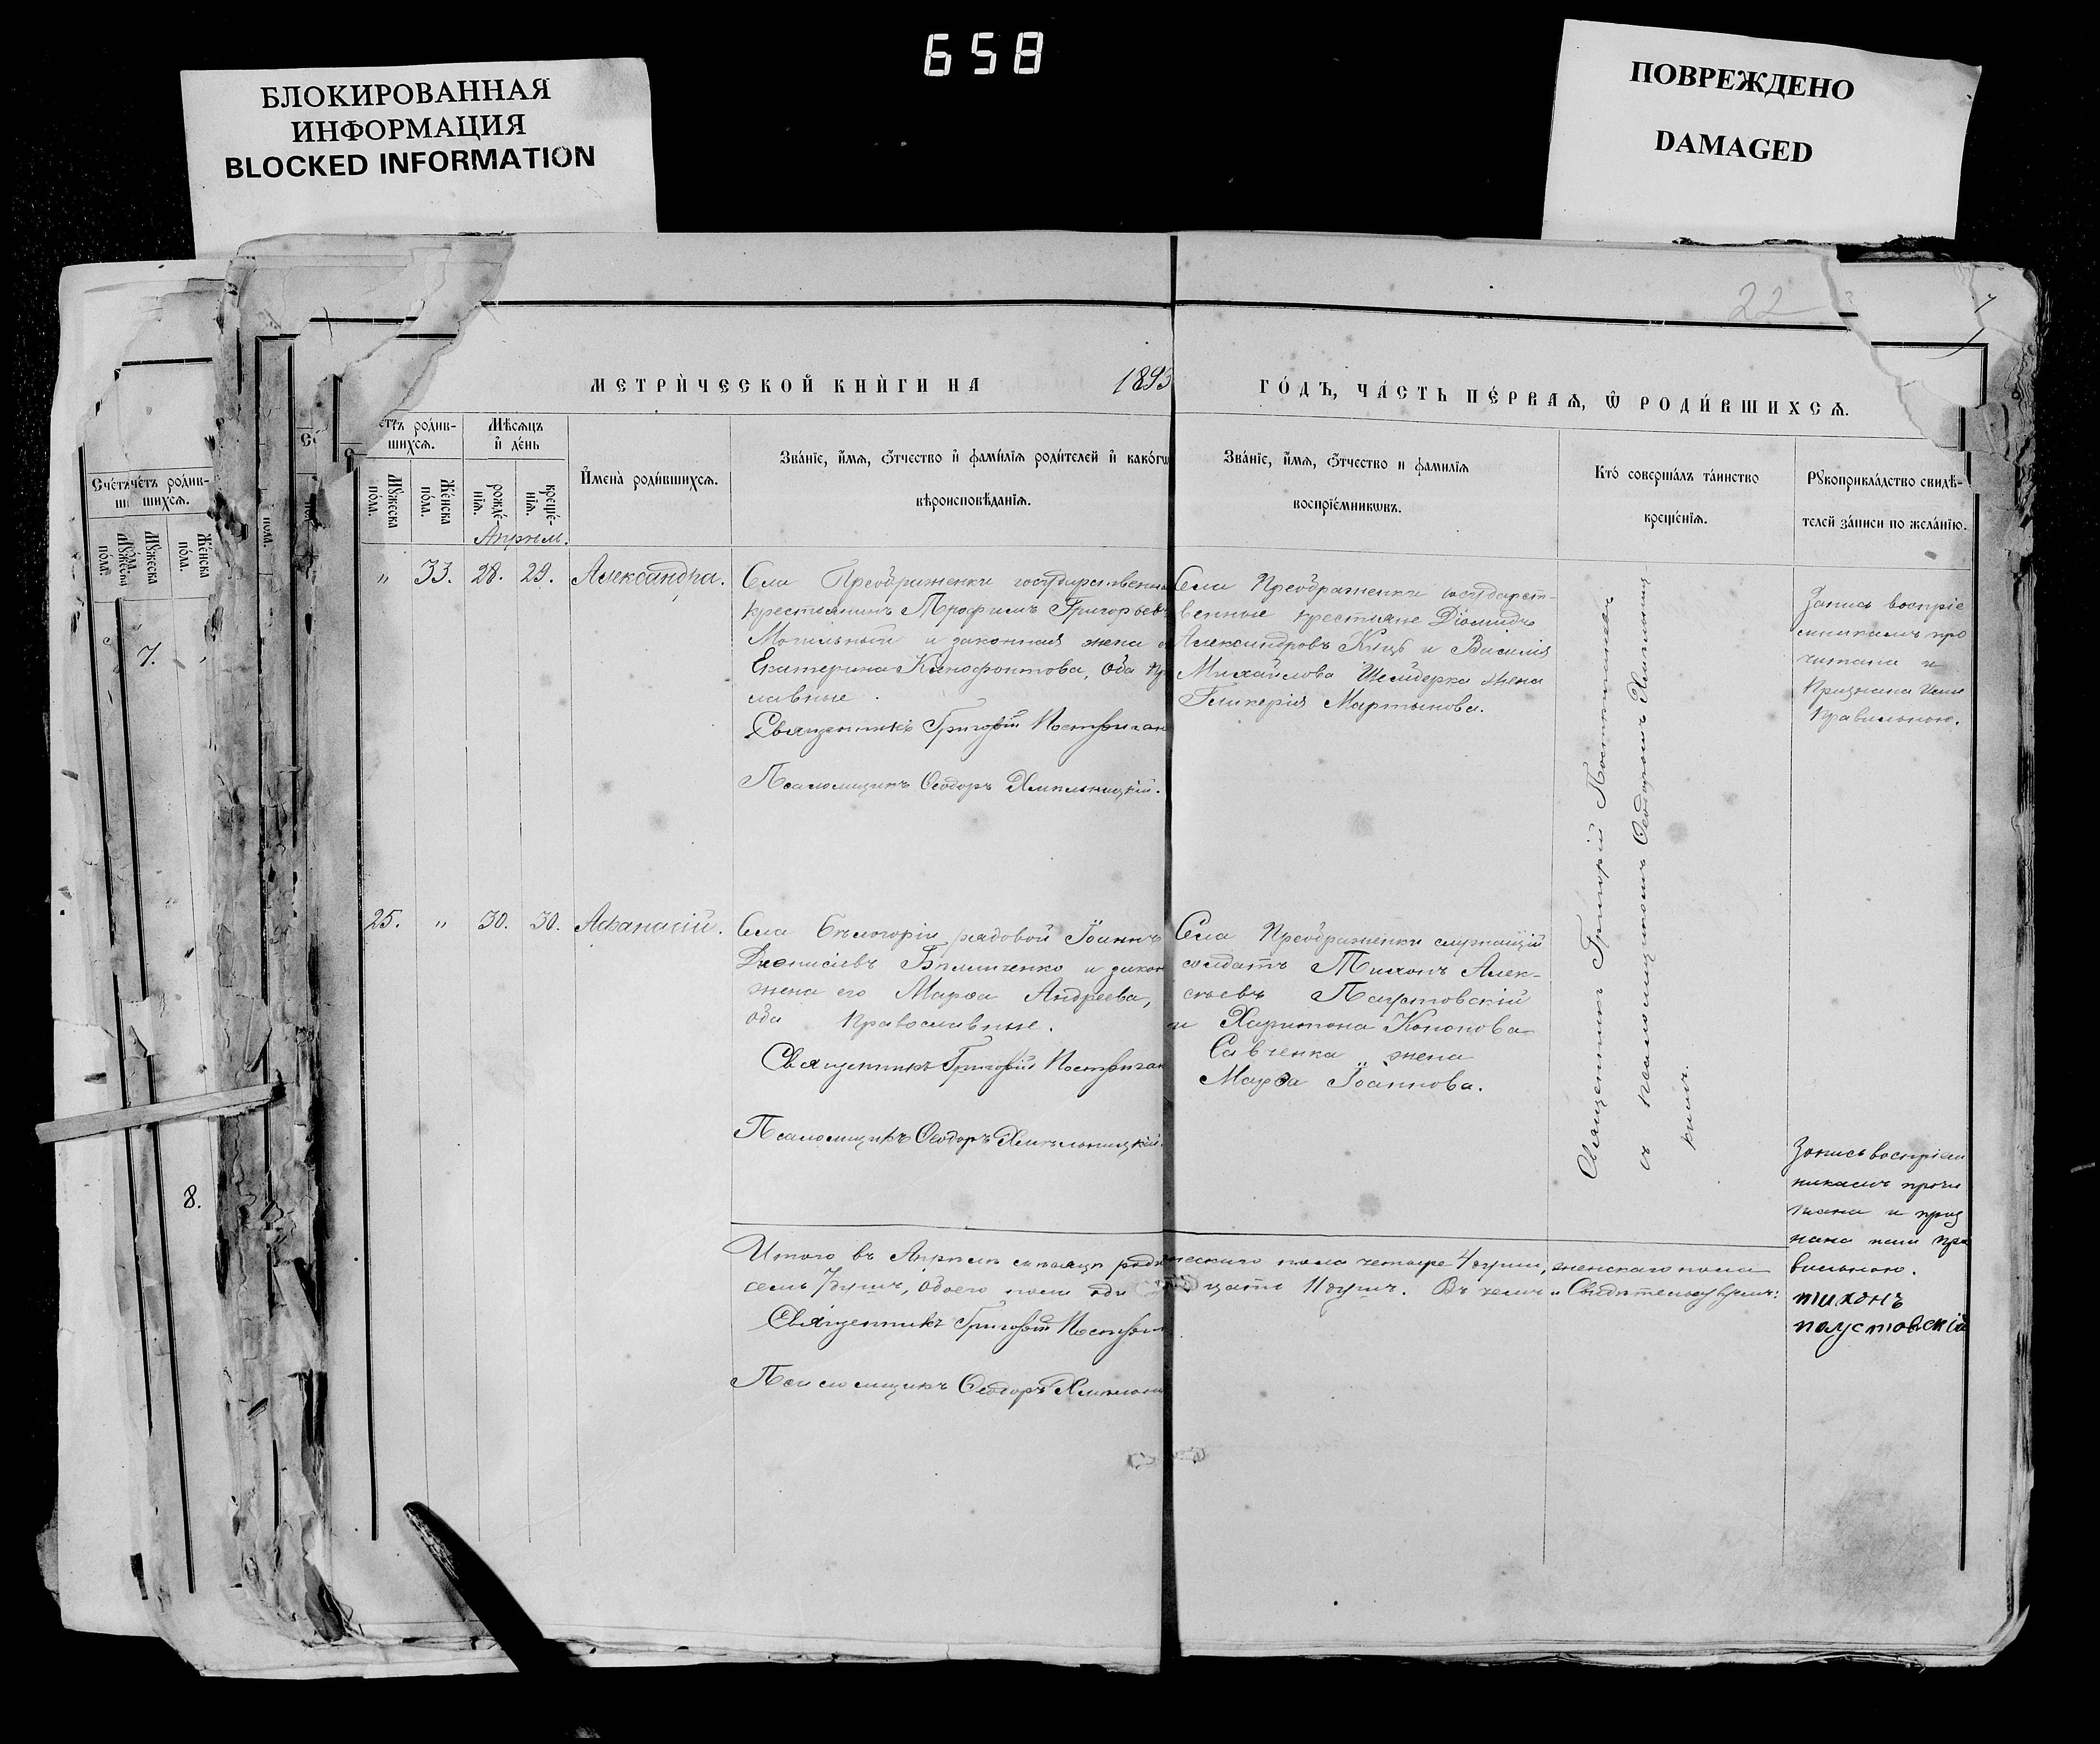 658
БЛОКИРОВАННАЯ
ИНФОРМАЦИЯ
BLOCKED INFORMATION
ПОВРЕЖДЕНО
DAMAGED
22
МЕТРИ́ЧЕСКОЙ КНИ́ГИ НА 1893 ГО́ДЪ, ЧА́СТЬ ПЕ́РВАѦ, Ѿ РОДИ́ВШИХСѦ.
етъ родив-
шихсѧ.
Мѣсѧцъ
и҆ де́нь
Мꙋжеска
по́ла.
Же́нска
по́ла.
рожде́-
нїѧ.
креще́-
нїѧ.
И҆мена̀ роди́вшихсѧ.
Зва́нїе, и҆́мѧ, ѻ҆́тчество и҆ фами́лїѧ роди́телей и҆ како́гѡ
вѣроисповѣ́данїѧ.
Зва́нїе, и҆́мѧ, ѻ҆́тчество и фамилїѧ
воспрїе́мникѡвъ.
Кто̀ соверша́лъ та́инство
креще́нїѧ.
Рꙋкоприкла́дство свидѣ́-
телей за́писи по жела́нїю.
Счетъ
четъ родив-
шихсѧ.
Мꙋжеска
по́ла.
Же́нска
по́ла.
7.
8.
Апрѣль.
" 33. 28. 29. Александра.
Села Преображенки государственны
крестьянинъ Трофимъ Григорьевъ
Могильный и законная жена е
Екатерина Ксенофонтова, оба пр
славные.
Священникъ Григорій Постриган
Псаломщикъ Ѳеодоръ Хмѣльницкій.
Села Преображенки государст-
венные крестьяне Діомидъ
Александровъ Куцъ и Василія
Михайлова Шейдерка жена
Гликерія Мартынова.
Священникъ Григорій
съ псаломщикомъ Ѳеодоромъ Хмѣльниц-
кимъ.
Запись воспріе
мникамъ про
читана и
признана ими
правильною.
25. " 30. 30. Аѳанасій.
Села Бѣлогоріи рядовой Іоаннъ
Діонисіевъ и закон
жена его Марѳа Андреева,
оба православные.
Священникъ Григорій Постриган
Псаломщикъ Ѳеодоръ Хмѣльницкій.
Села Преображенки служащій
солдатъ Тихонъ Алек-
сѣевъ Паустовскій
и Харитона Кононова
Савченка жена
Марѳа Іоаннова.
Запись воспріем
никамъ прочи
тана и приз
нана ими пра
вильною.
тихонъ
паустовскій
Итого въ Апрѣлѣ мѣсяцѣ роди ческаго пола четыре 4 души, женскаго пола
семь 7 душъ, обоего пола оди цать 11 душъ. Въ чемъ и Свидѣтельствуемъ:
Священникъ Григорій Постриг
Псаломщикъ Ѳеодоръ Хмѣльни